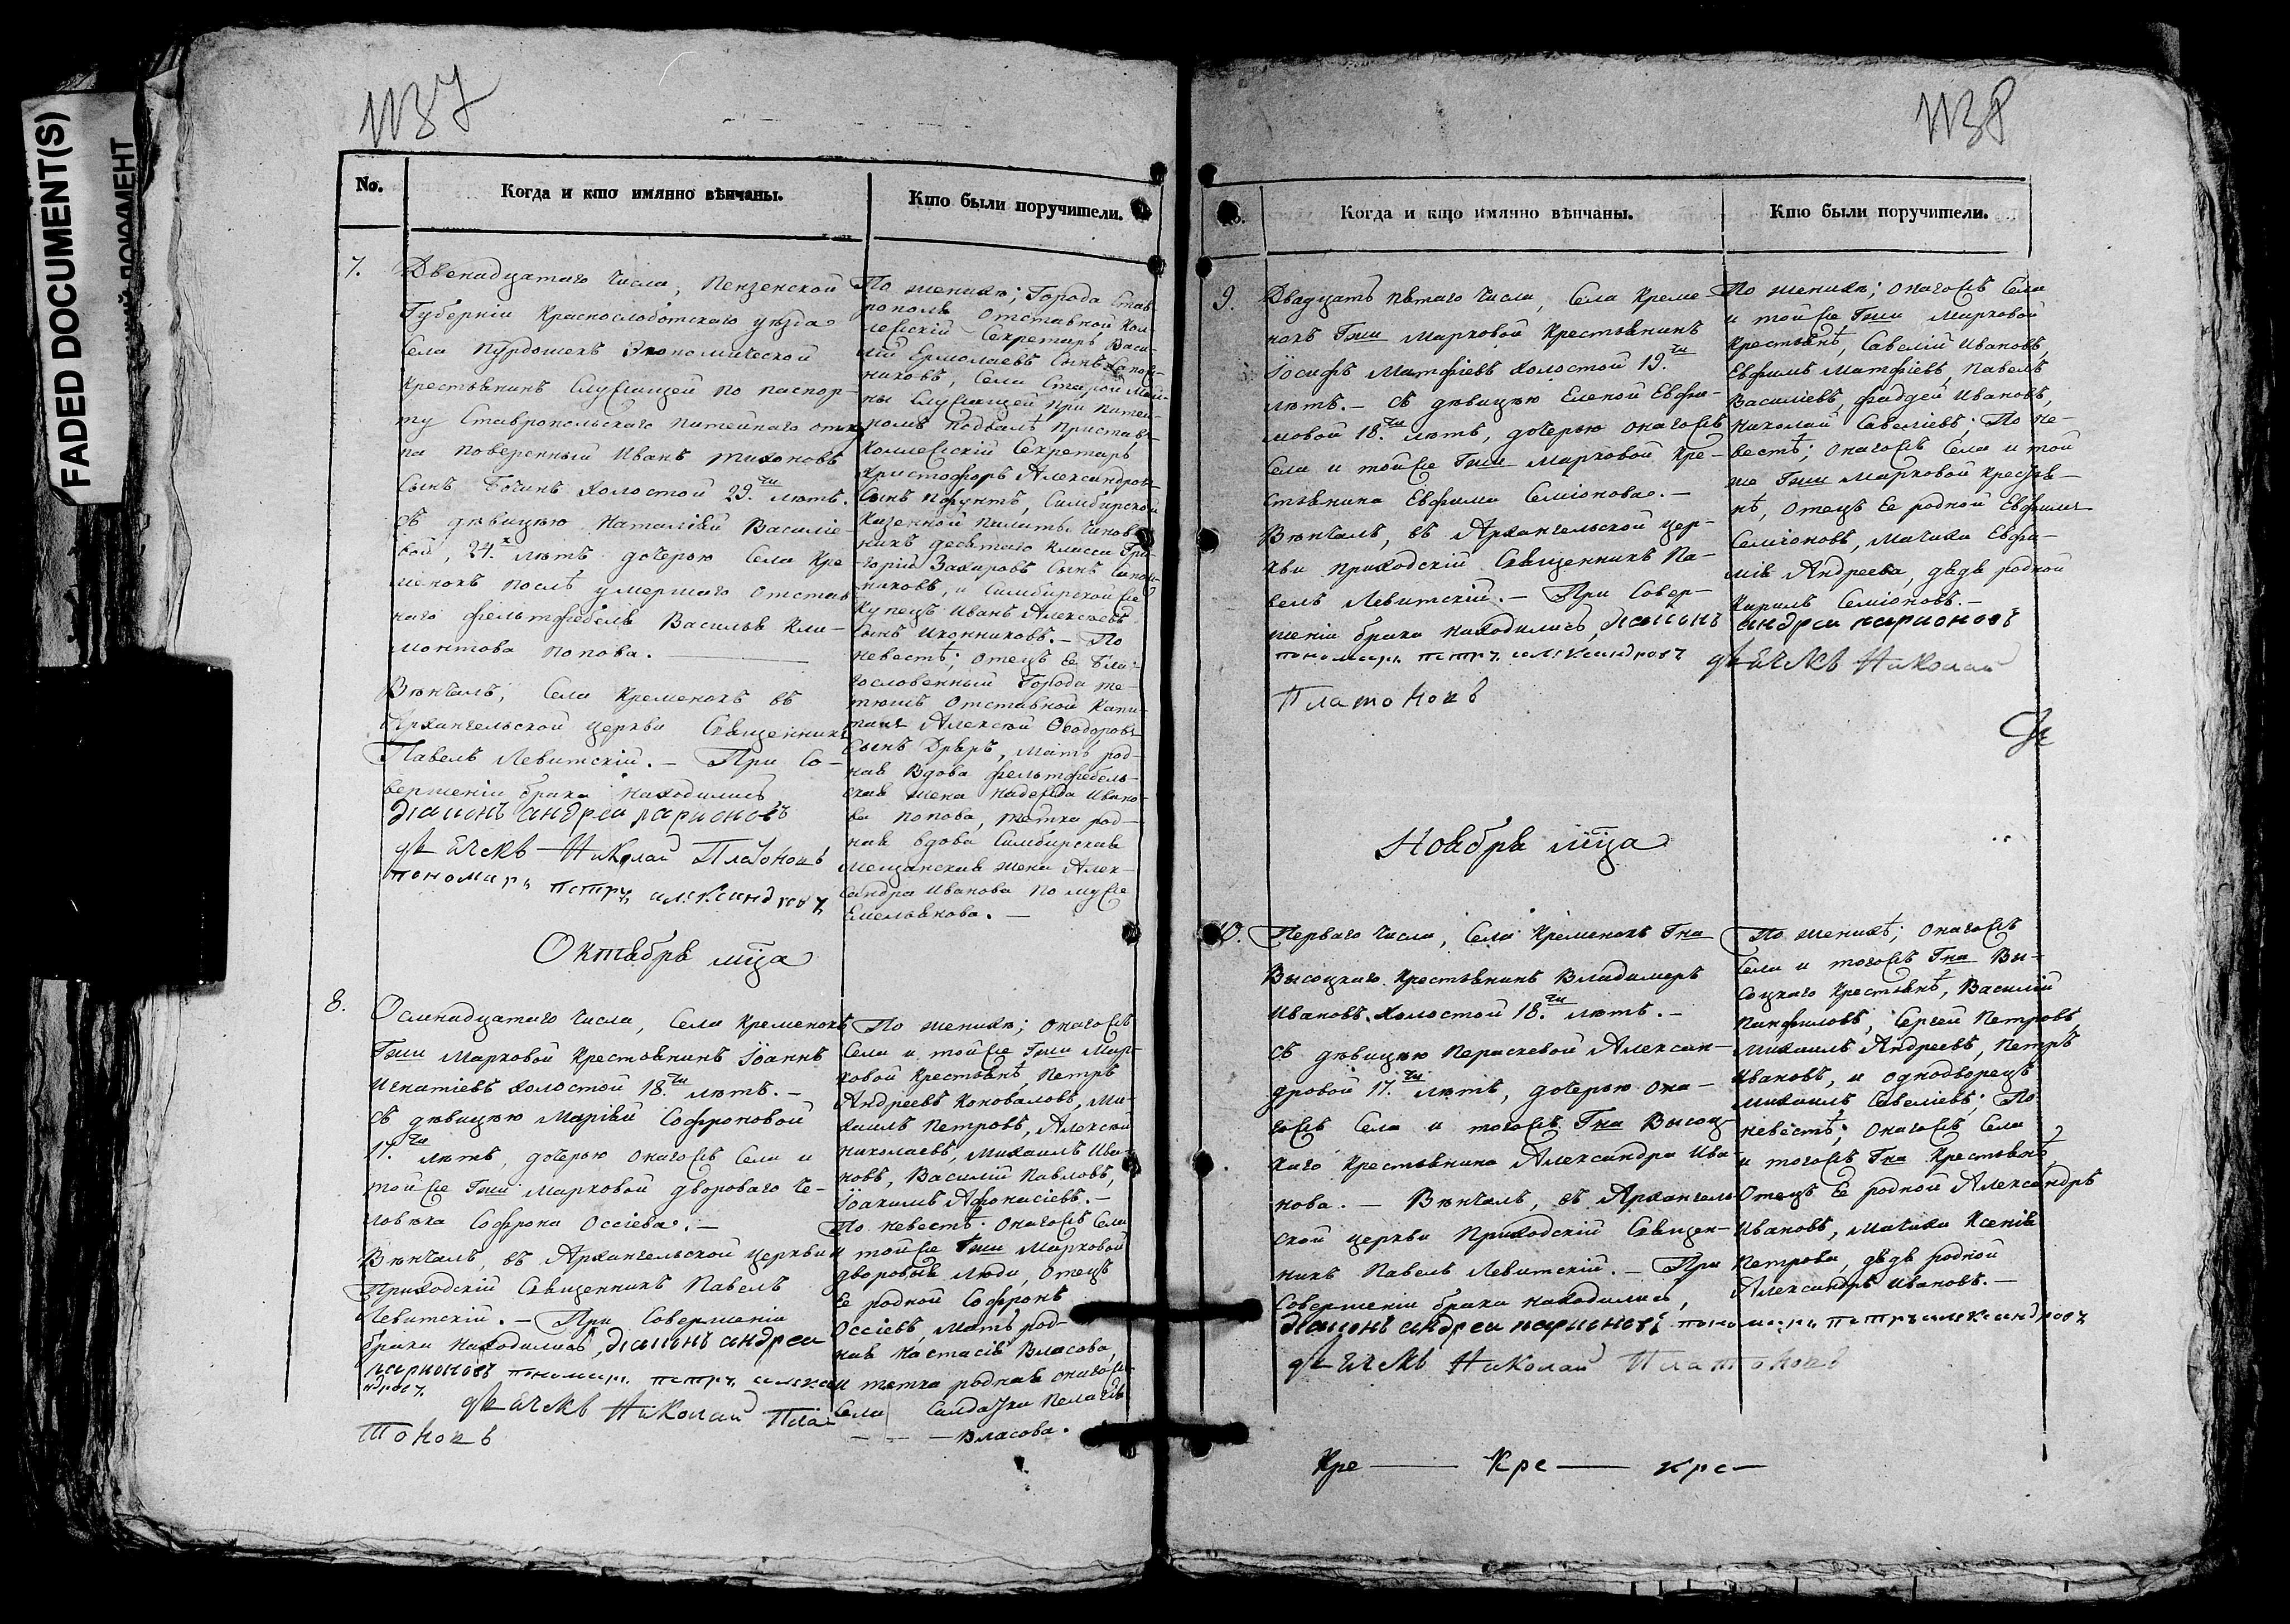 FADED DOCUMENT(S)
1137
No.
Когда и кто имянно вѣнчаны.
Кто были поручители.
7.
Двенадцатаго числа, Пензенской
Губерніи Краснослоботскаго уѣзда
Села Пурдошекъ Экономической
Крестьянинъ служащей по паспор-
ту Ставропольскаго питейнаго отку
па поверенный Иванъ Тихоновъ
Сынъ холостой 29.ти лѣтъ.
съ дѣвицею Наталіей Василіе-
вой, 24.х лѣтъ дочерью Села Кре
менокъ послѣ умершаго отстав
наго фельтфебеля Василья Кли-
монтова Попова.
Вѣнчалъ, Села Кременокъ въ
Архангельской церкви Священникъ
Павелъ Левитскій. — При Со-
вершеніи брака находились
діаконъ андреи ларионовъ
дьячекъ Николай Платоновъ
пономарь петръ александровъ
По женихѣ; Города Став
рополя отставной Кол-
лежскій Секретарь Васи-
лій Ермолаевъ Сынъ Сапож-
никовъ, Села Старой Май-
ны служащей при питей-
номъ подвалѣ приставъ
Коллежскій Секретарь
Христофоръ Александровъ
Сынъ Пфунтъ, Симбирской
Казенной палаты чинов-
никъ десятаго класса Гри-
горій Захаровъ Сынъ Сапож-
никовъ, и Симбирской же
Купецъ Иванъ Алексѣевъ
Сынъ Иконниковъ. — По
невестѣ; отецъ ее бла-
гословенный Города Те-
тюшъ отставной Капи-
танъ Алексѣй Ѳеодоровъ
Сынъ Дреръ, мать род-
ная вдова фельтфебель-
ская жена Надежда Ивано-
ва Попова, тетка род-
ная вдова Симбирская
мещанская жена Алек-
сандра Иванова по муже
Емельянова. —
Октября мца
8.
Осмнадцатаго числа, Села Кременокъ
Гжи Марковой Крестьянинъ Іоаннъ
Игнатіевъ холостой 18.ти лѣтъ. —
съ дѣвицею Маріей Софроновой
17.ти лѣтъ, дочерью онагожъ Села и
той же Гжи Марковой двороваго че-
ловѣка Софрона Оссіева. —
Вѣнчалъ, въ Архангельской церкви
Приходскій Священникъ Павелъ
Левитскій. — При Совершеніи
брака находились, діаконъ андреи
ларионовъ пономарь петръ алекса
ндровъ
дьячекъ Николай Пла-
тоновъ
По женихѣ; онагожъ
Села и той же Гжи Мар-
ковой Крестьянѣ, Петръ
Андреевъ Коноваловъ, Ми-
хаилъ Петровъ, Алексѣй
Николаевъ, Михаилъ Ива-
новъ, Василій Павловъ,
Іоакимъ Афонасіевъ. —
По невестѣ: онагожъ Села
и той же Гжи Марковой
дворовые люди, отецъ
ее родной Софронъ
Оссіевъ, мать род-
ная Настасія Власова,
и тетка родная онагожъ
Села Салдатка Пелагея
— — — Власова.
1138
No.
Когда и кто имянно вѣнчаны.
Кто были поручители.
9.
Двадцать пятаго числа, Села Креме-
нокъ Гжи Марковой Крестьянинъ
Іосифъ Матфіевъ холостой 19.ти
лѣтъ. — съ дѣвицею Еленой Евфи-
мовой 18.ти лѣтъ, дочерью онагожъ
Села и той же Гжи Марковой Кре-
стьянина Евфима Семіонова. —
Вѣнчалъ, въ Архангельской цер-
кви приходскій Священникъ Па-
велъ Левитскій. — При Совер-
шеніи брака находились, діаконъ андреи ларионовъ
пономарь петръ александровъ дьячекъ Николай
Платоновъ
По женихѣ; онагожъ Села
и той же Гжи Марковой
Крестьянѣ, Савелій Ивановъ,
Евфимъ Матфіевъ, Павелъ
Василіевъ, Фаддей Ивановъ,
Николай Савеліевъ; По не-
вестѣ; онагожъ Села и той
же Гжи Марковой Крестья-
нѣ, отецъ ее родной Евфимъ
Семіоновъ, мачиха Евфи-
мія Андреева, дядя родной
Кирилъ Семіоновъ. —
Ноября мца
10.
Перваго числа, Села Кременокъ Гна
Высоцкаго Крестьянинъ Владимеръ
Ивановъ холостой 18.ти лѣтъ. —
съ дѣвицею Пераскевой Алексан-
дровой 17.ти лѣтъ, дочерью она-
гожъ Села и тогожъ Гна Высоц-
каго Крестьянина Александра Ива-
нова. — Вѣнчалъ, въ Архангель-
ской церкви Приходскій Священ-
никъ Павелъ Левитскій. — При
Совершеніи брака находились,
діаконъ андреи ларионовъ пономарь петръ александровъ
дьячекъ Николай Платоновъ
По женихѣ; онагожъ
Села и тогожъ Гна Вы-
соцкаго Крестьянѣ, Василій
Панфиловъ, Сергей Петровъ
Михаилъ Андреевъ, Петръ
Ивановъ, и однодворецъ
Михаилъ Савеліевъ; По
невестѣ; онагожъ Села
и тогожъ Гна Крестьянѣ,
Отецъ ее родной Александръ
Ивановъ, мачиха Ксенія
Петрова, дядя родной
Александръ Ивановъ. —
Кре — Кре — кре —